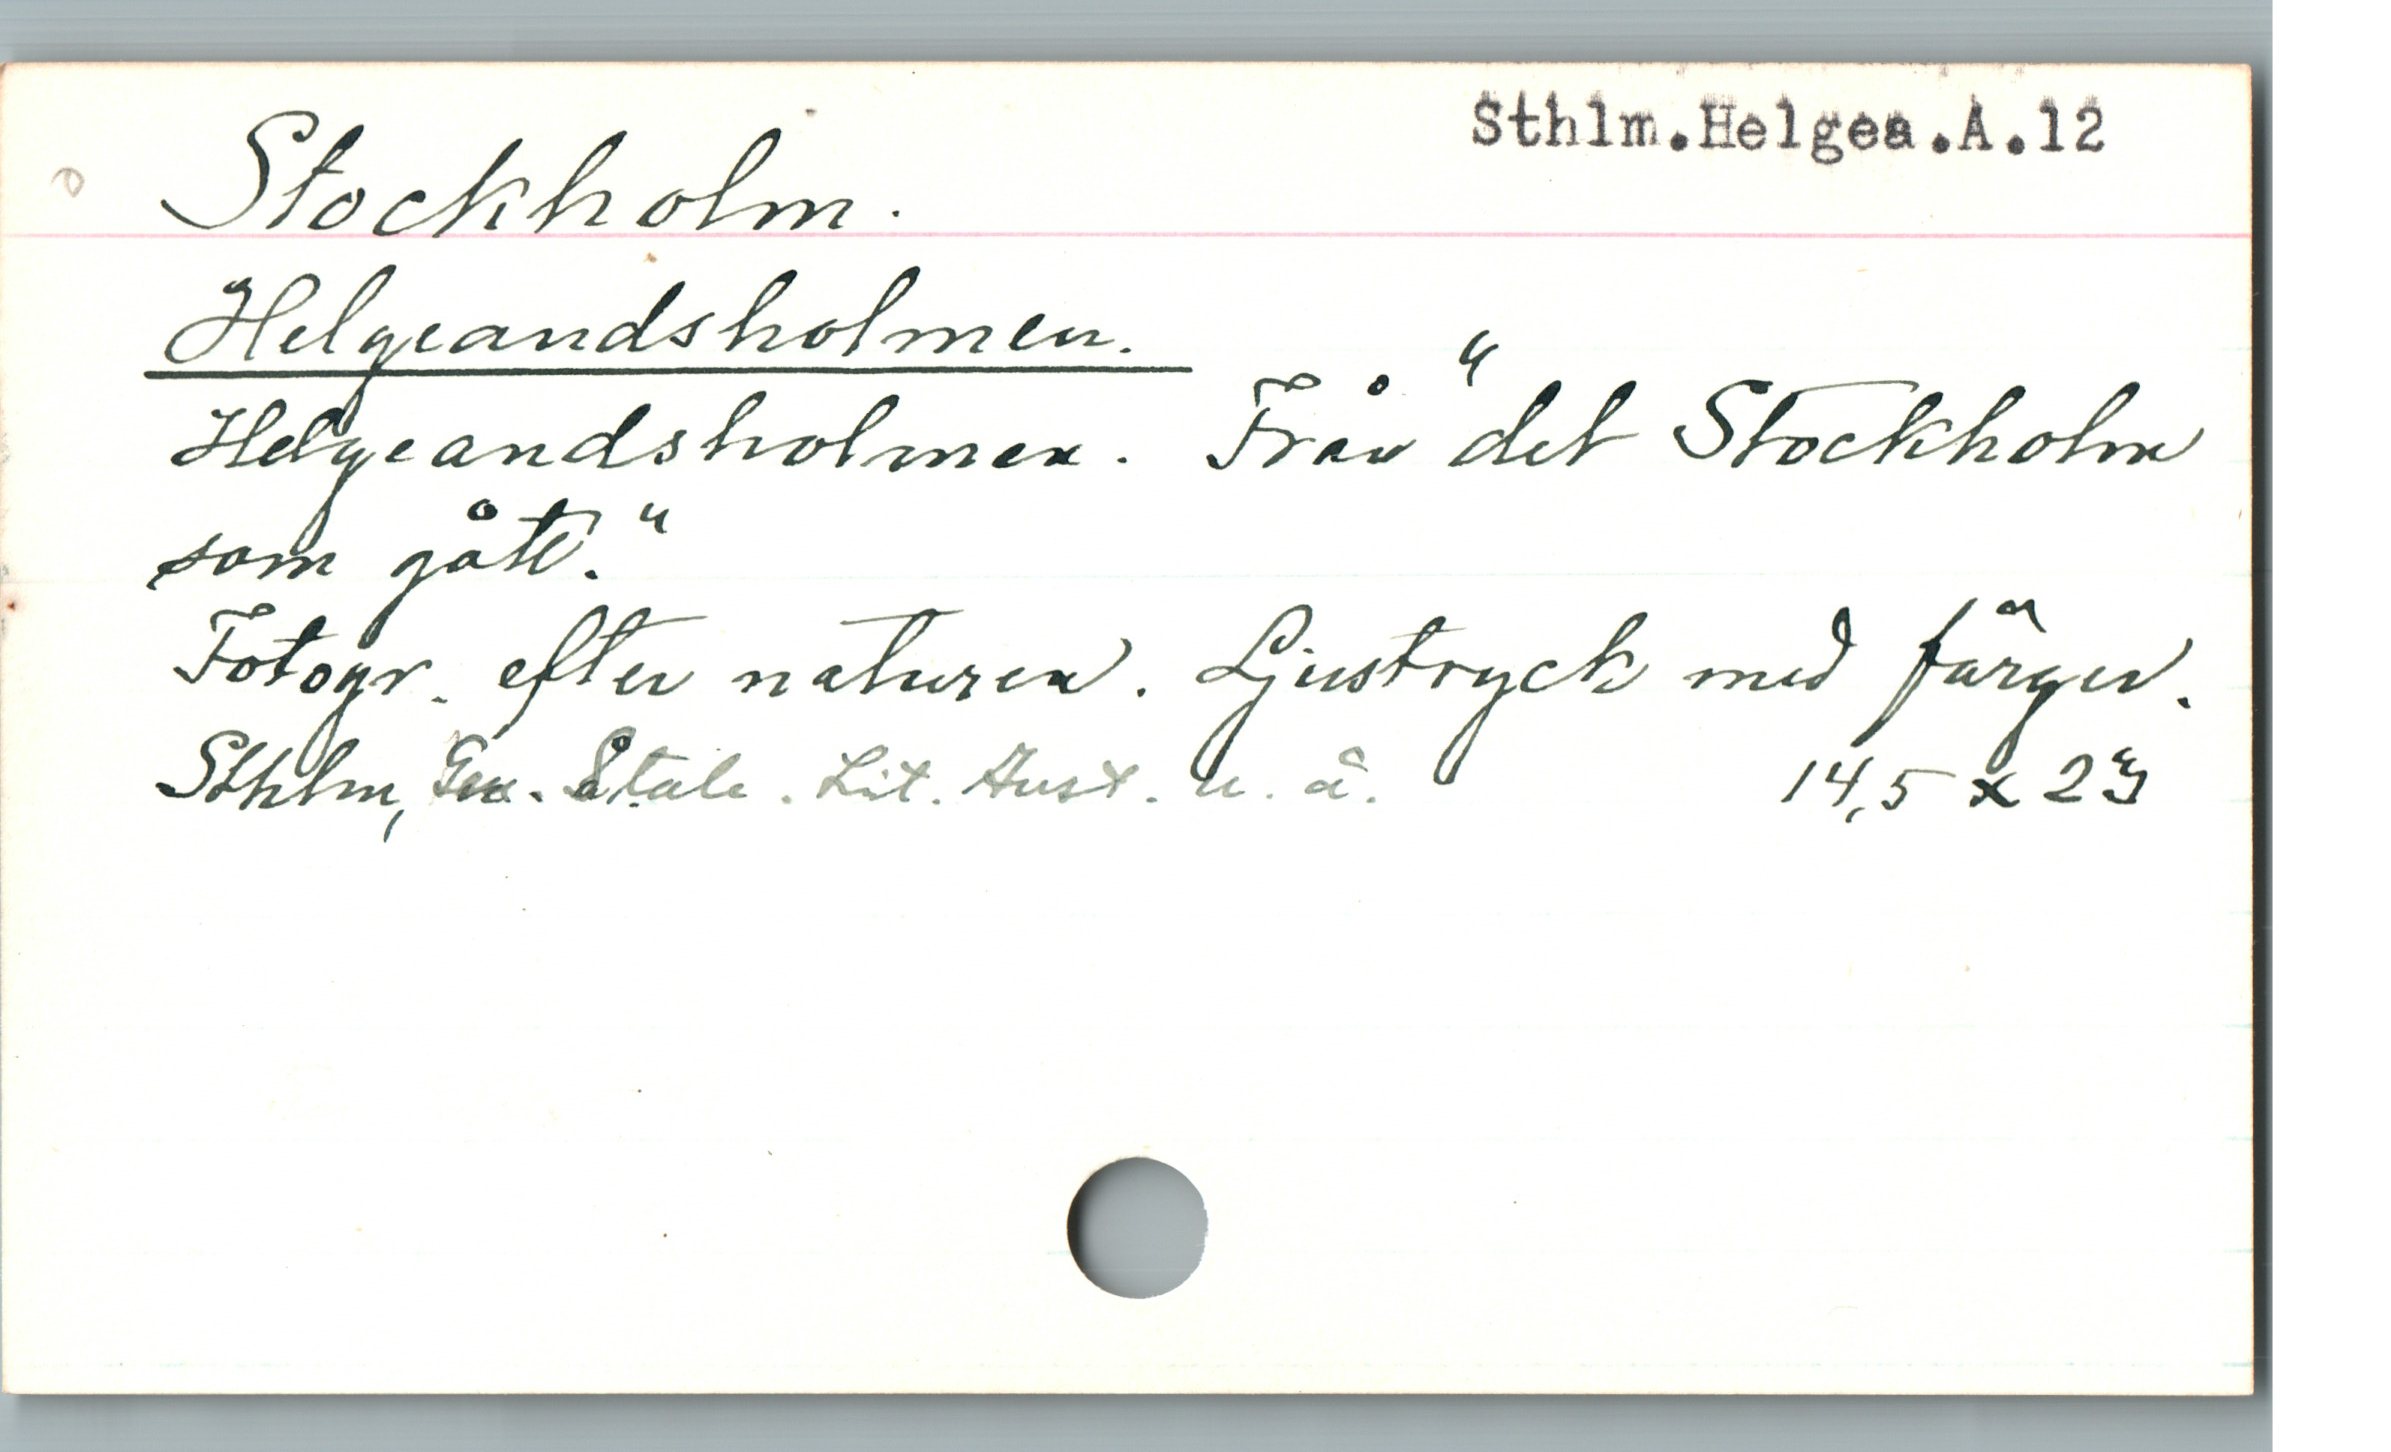 Sthlm.Helgea.A.12
Stockholm.
Helgeandsholmen.
Helgeandsholmen. Från "det Stockholm
som gått."
Fotogr. efter naturen. Ljustryck med färger.
Sthlm, Gen. Stab. Lit. Anst. u. å. 14,5 x 23